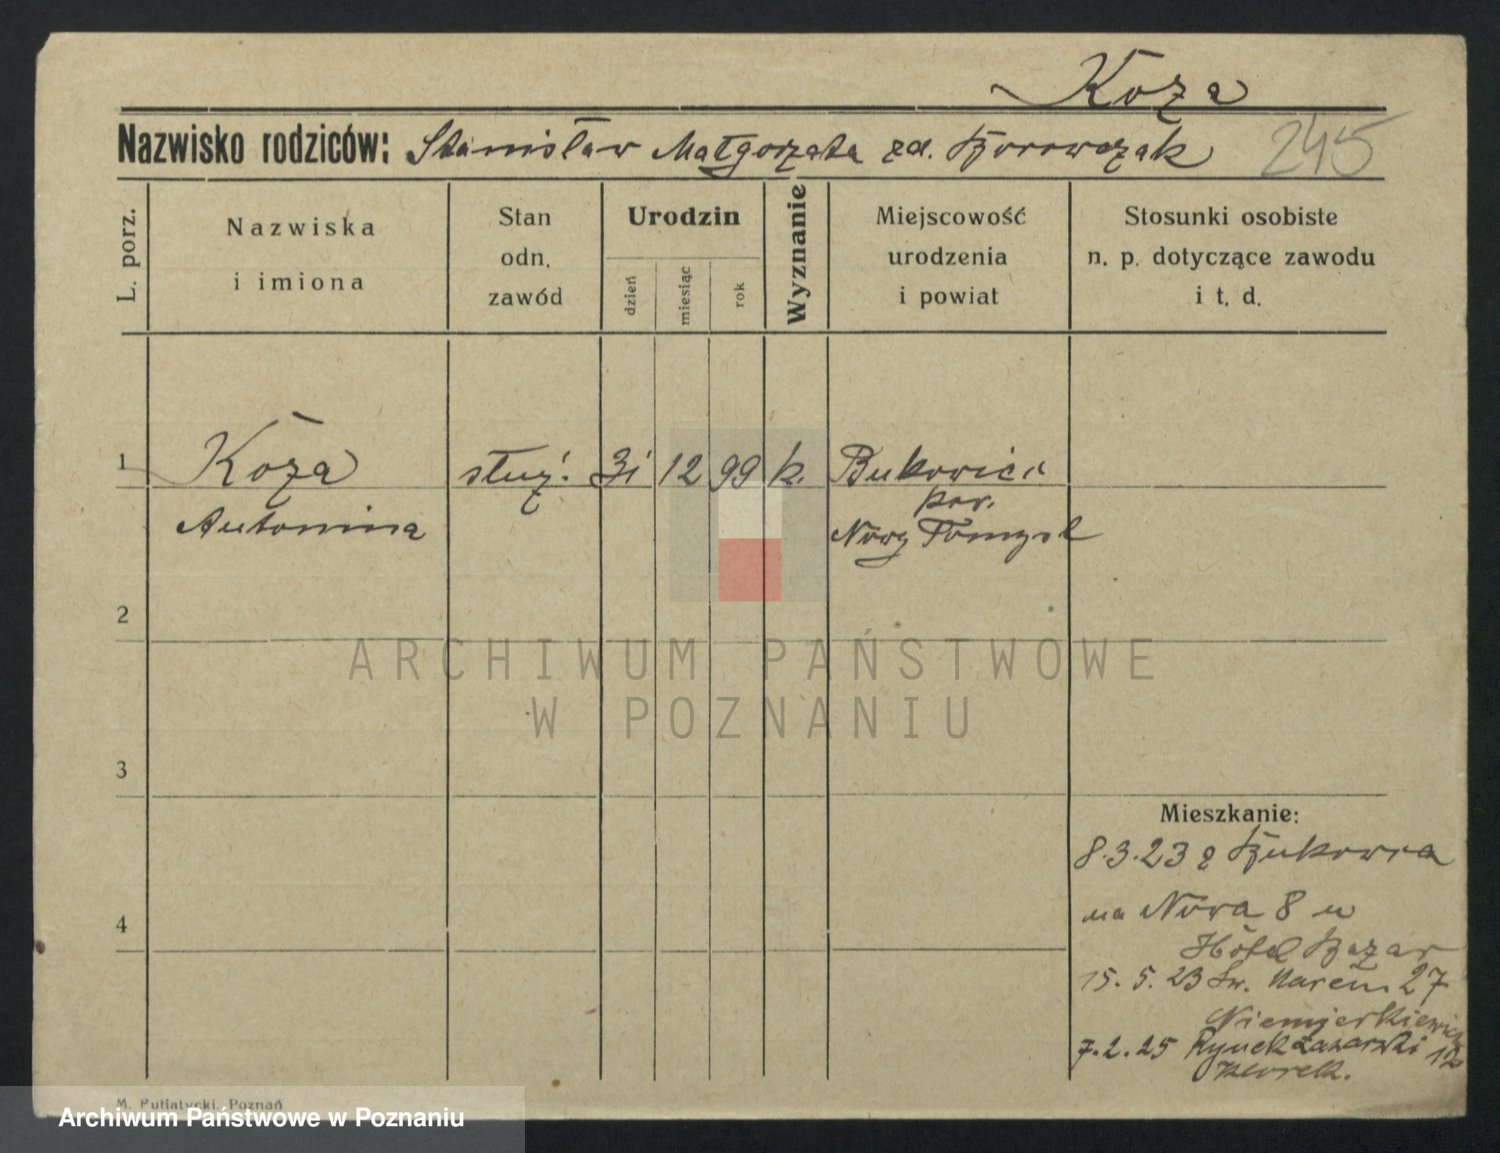 Koza
Nazwisko rodziców: Stanisław Małgorzata zd. Borowczak 245
L. porz.
Nazwiska
i imiona
Stan
odn.
zawód
Urodzin
dzień
miesiąc
rok
Wyznanie
Miejscowość
urodzenia
i powiat
Stosunki osobiste
n. p. dotyczące zawodu
i t. d.
1 Koza służ. 31 12 99 k. Bukowiec
pow.
Antonina Nowy Tomysl
2
ARCHIWUM PAŃSTWOWE
W POZNANIU
3
Mieszkanie:
8.3.23 z Bukowca
4
na Nowa 8 u
Hôtel Bazar
15.5.23 Św. Marcin 27
Niemjerkiewicz
7.2.25 Rynek Łazarski
M. Putiatycki, Poznań
Archiwum Państwowe w Poznaniu